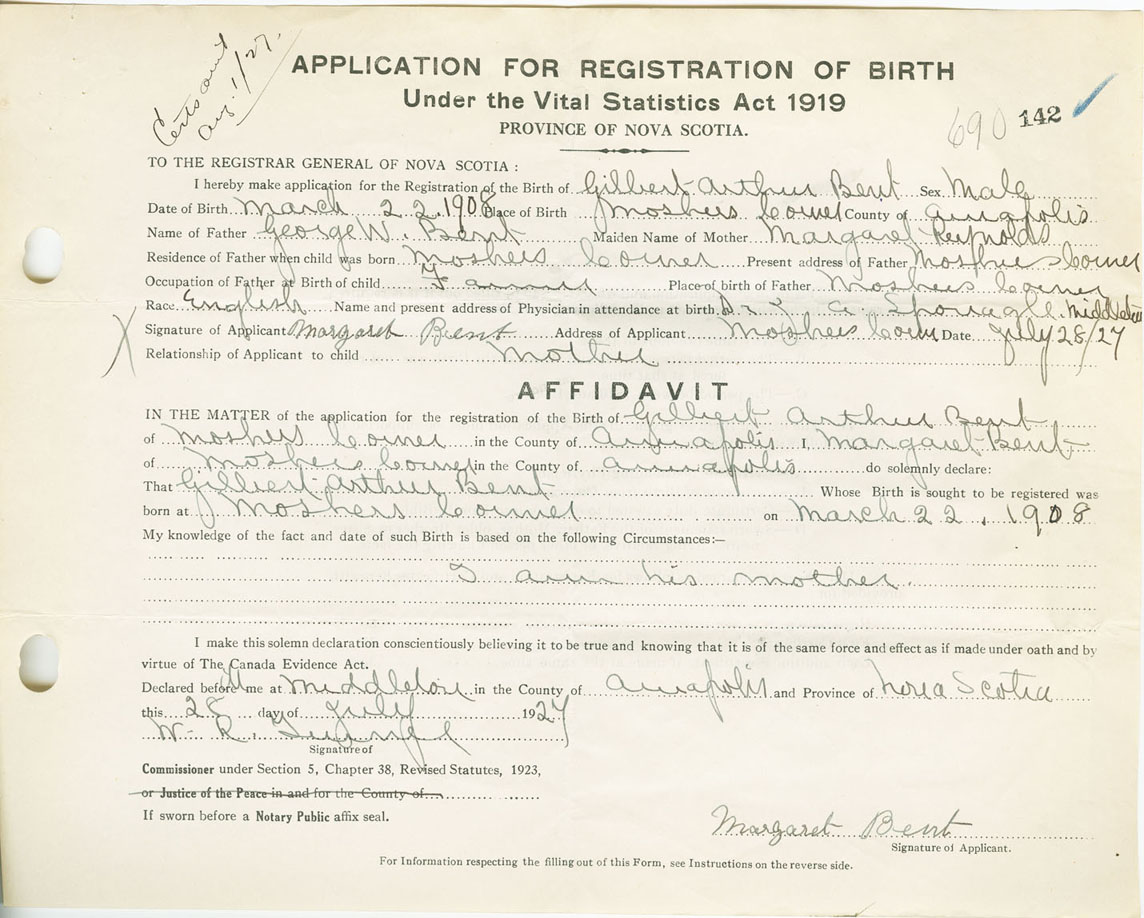 Certs sent
Aug. 1/27.
APPLICATION FOR REGISTRATION OF BIRTH
Under the Vital Statistics Act 1919
690 142
PROVINCE OF NOVA SCOTIA.
TO THE REGISTRAR GENERAL OF NOVA SCOTIA :
I hereby make application for the Registration of the Birth of Gilbert Arthur Bent Sex Male
Date of Birth March 22, 1908 Place of Birth Moshers Corner County of Annapolis
Name of Father George W. Bent Maiden Name of Mother Margaret Reynolds
Residence of Father when child was born Moshers Corner Present address of Father Moshers Corner
Occupation of Father at Birth of child Place of birth of Father Moshers Corner
Race English Name and present address of Physician in attendance at birth Dr. Middleton
Signature of Applicant Margaret Bent Address of Applicant Moshers Corn Date July 28/27
Relationship of Applicant to child Mother
AFFIDAVIT
IN THE MATTER of the application for the registration of the Birth of Gilbert Arthur Bent
of Moshers Corner in the County of Annapolis I, Margaret Bent
of Moshers Corner in the County of Annapolis do solemnly declare:
That Gilbert Arthur Bent Whose Birth is sought to be registered was
born at Moshers Corner on March 22, 1908
My knowledge of the fact and date of such Birth is based on the following Circumstances:—
I am his mother.
I make this solemn declaration conscientiously believing it to be true and knowing that it is of the same force and effect as if made under oath and by
virtue of The Canada Evidence Act.
Declared before me at Middleton in the County of Annapolis and Province of Nova Scotia
this 28 day of July 1927
W. R.
Signature of
Commissioner under Section 5, Chapter 38, Revised Statutes, 1923,
or Justice of the Peace in and for the County of
If sworn before a Notary Public affix seal.
Margaret Bent
Signature of Applicant.
For Information respecting the filling out of this Form, see Instructions on the reverse side.